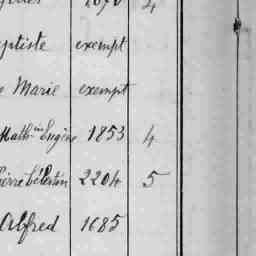 ptiste exempt
Marie exempt
Math.in Eugène 1853 4
ierre Célestin 2204 5
Alfred 1685